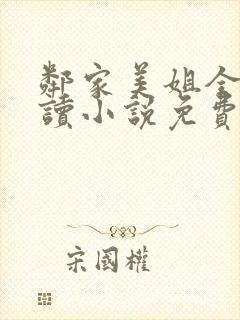 鄰家美姐全
讀小說免費
宋國權